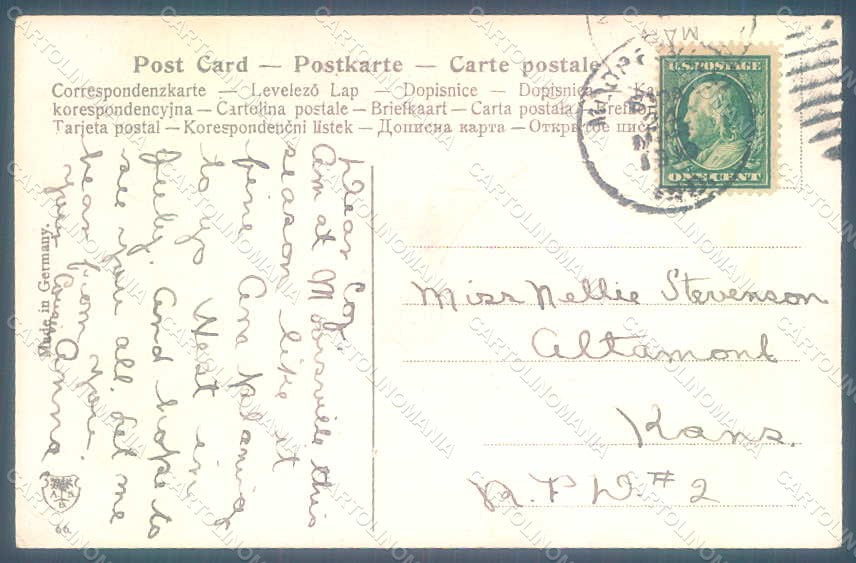 Post Card — Postkarte — Carte postale
Correspondenzkarte — Levelező Lap — Dopisnice — Dopisnica —
korespondencyjna — Cartolina postale — Briefkaart — Carta postala —
Tarjeta postal — Korespondenčni listek — Дописна карта — Открытое
U.S. POSTAGE
ONE CENT
Dear Coz.
Am at Moorsville this
season like it
fine Am planing
to go West in
July. and hope to
see you all. Let me
hear from you
Your
Anna
Made in Germany.
Miss Nellie Stevenson
Altamont
Kans.
#2
66
CARTOLINOMANIA